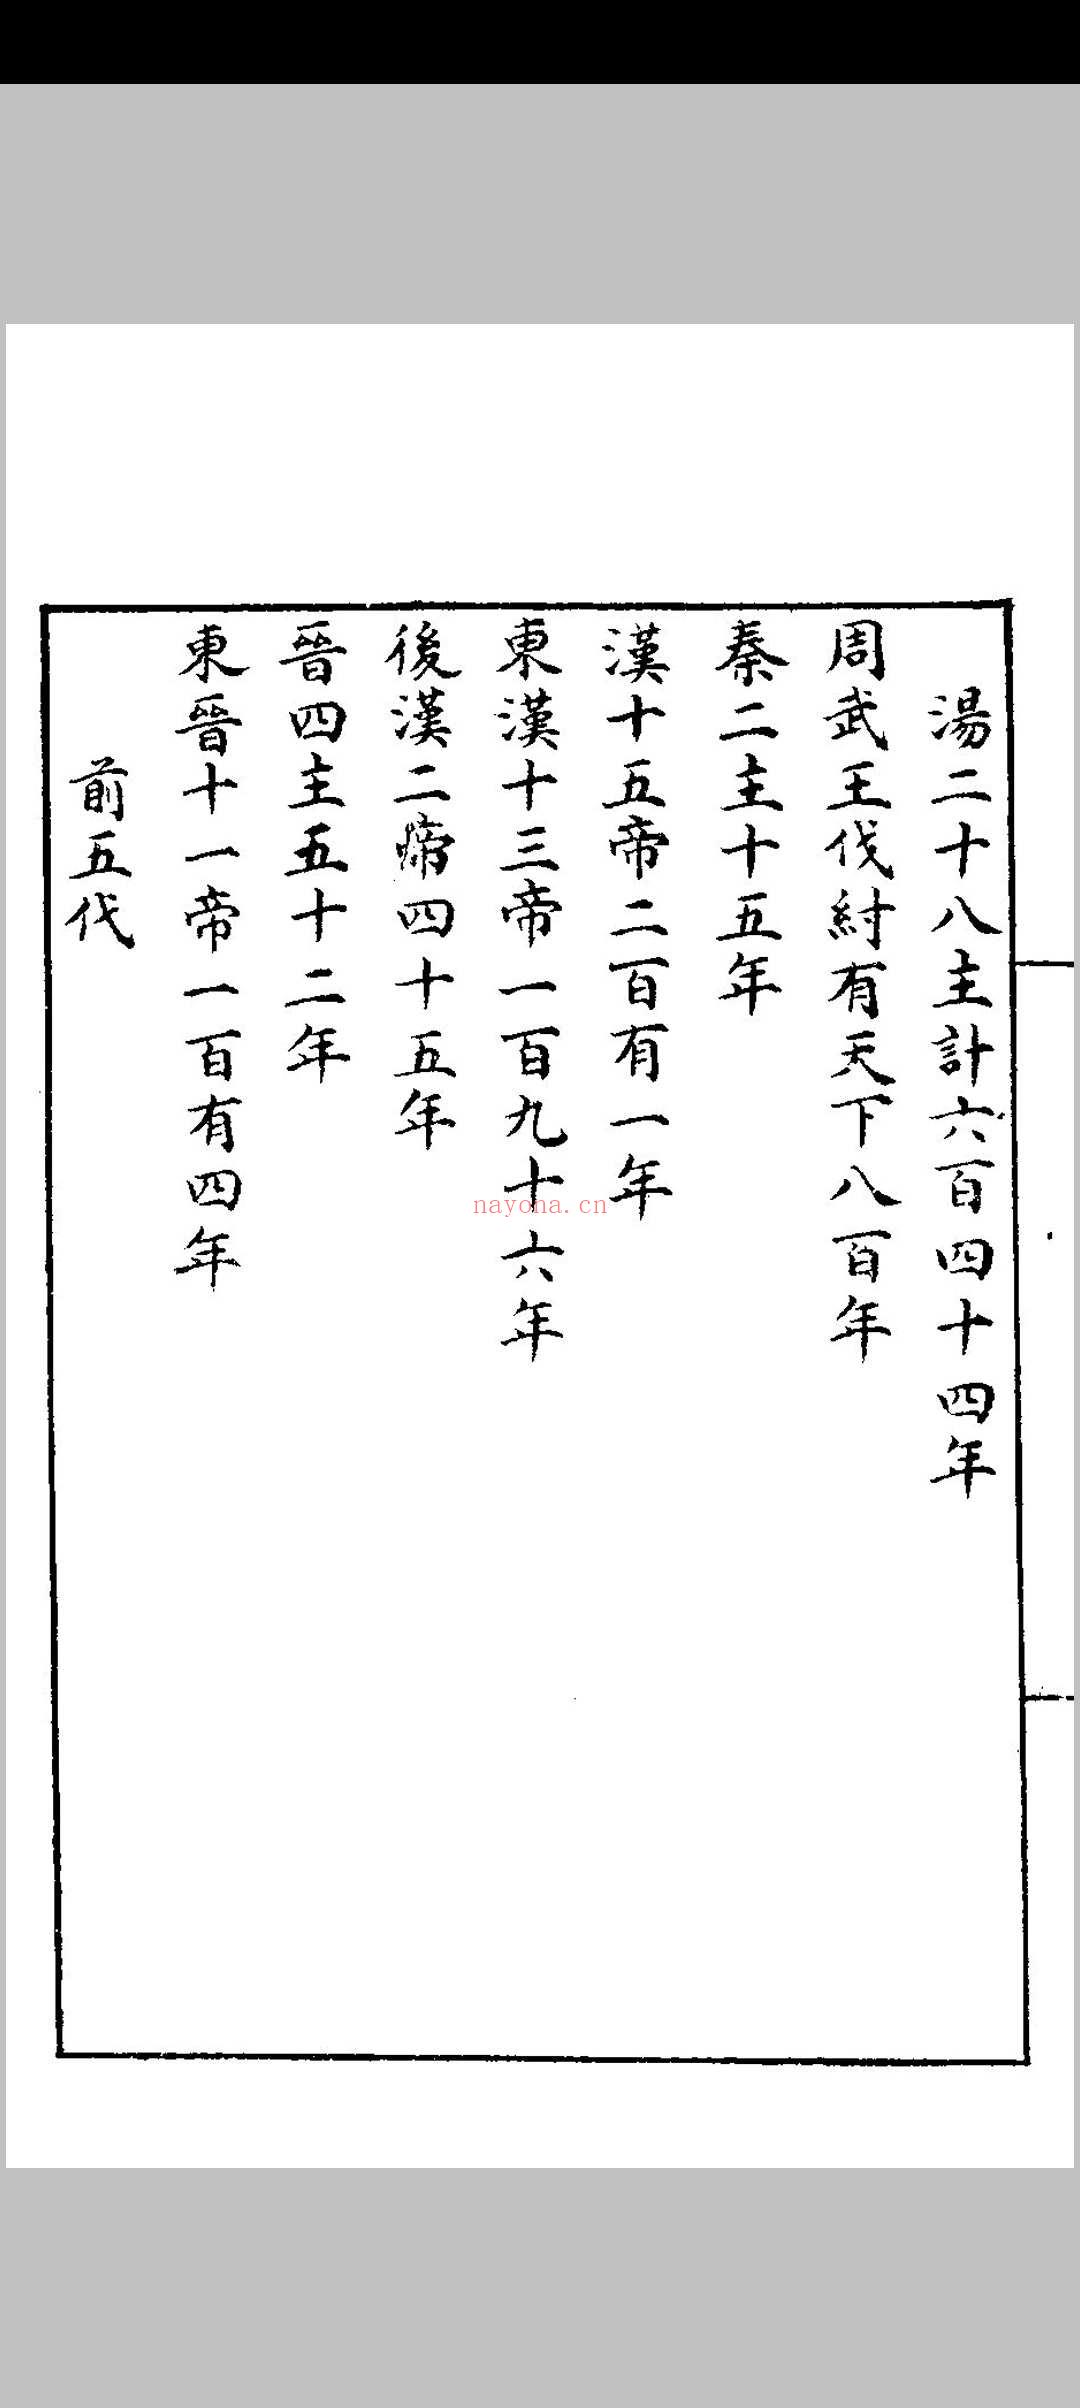 湯二十八主計六百四十四年
周武王伐紂有天下八百年
秦二主十五年
漢十五帝二百有一年
東漢十三帝一百九十六年
後漢二帝四十五年
晉四主五十二年
東晉十一帝一百有四年
前五代
nayona.cn